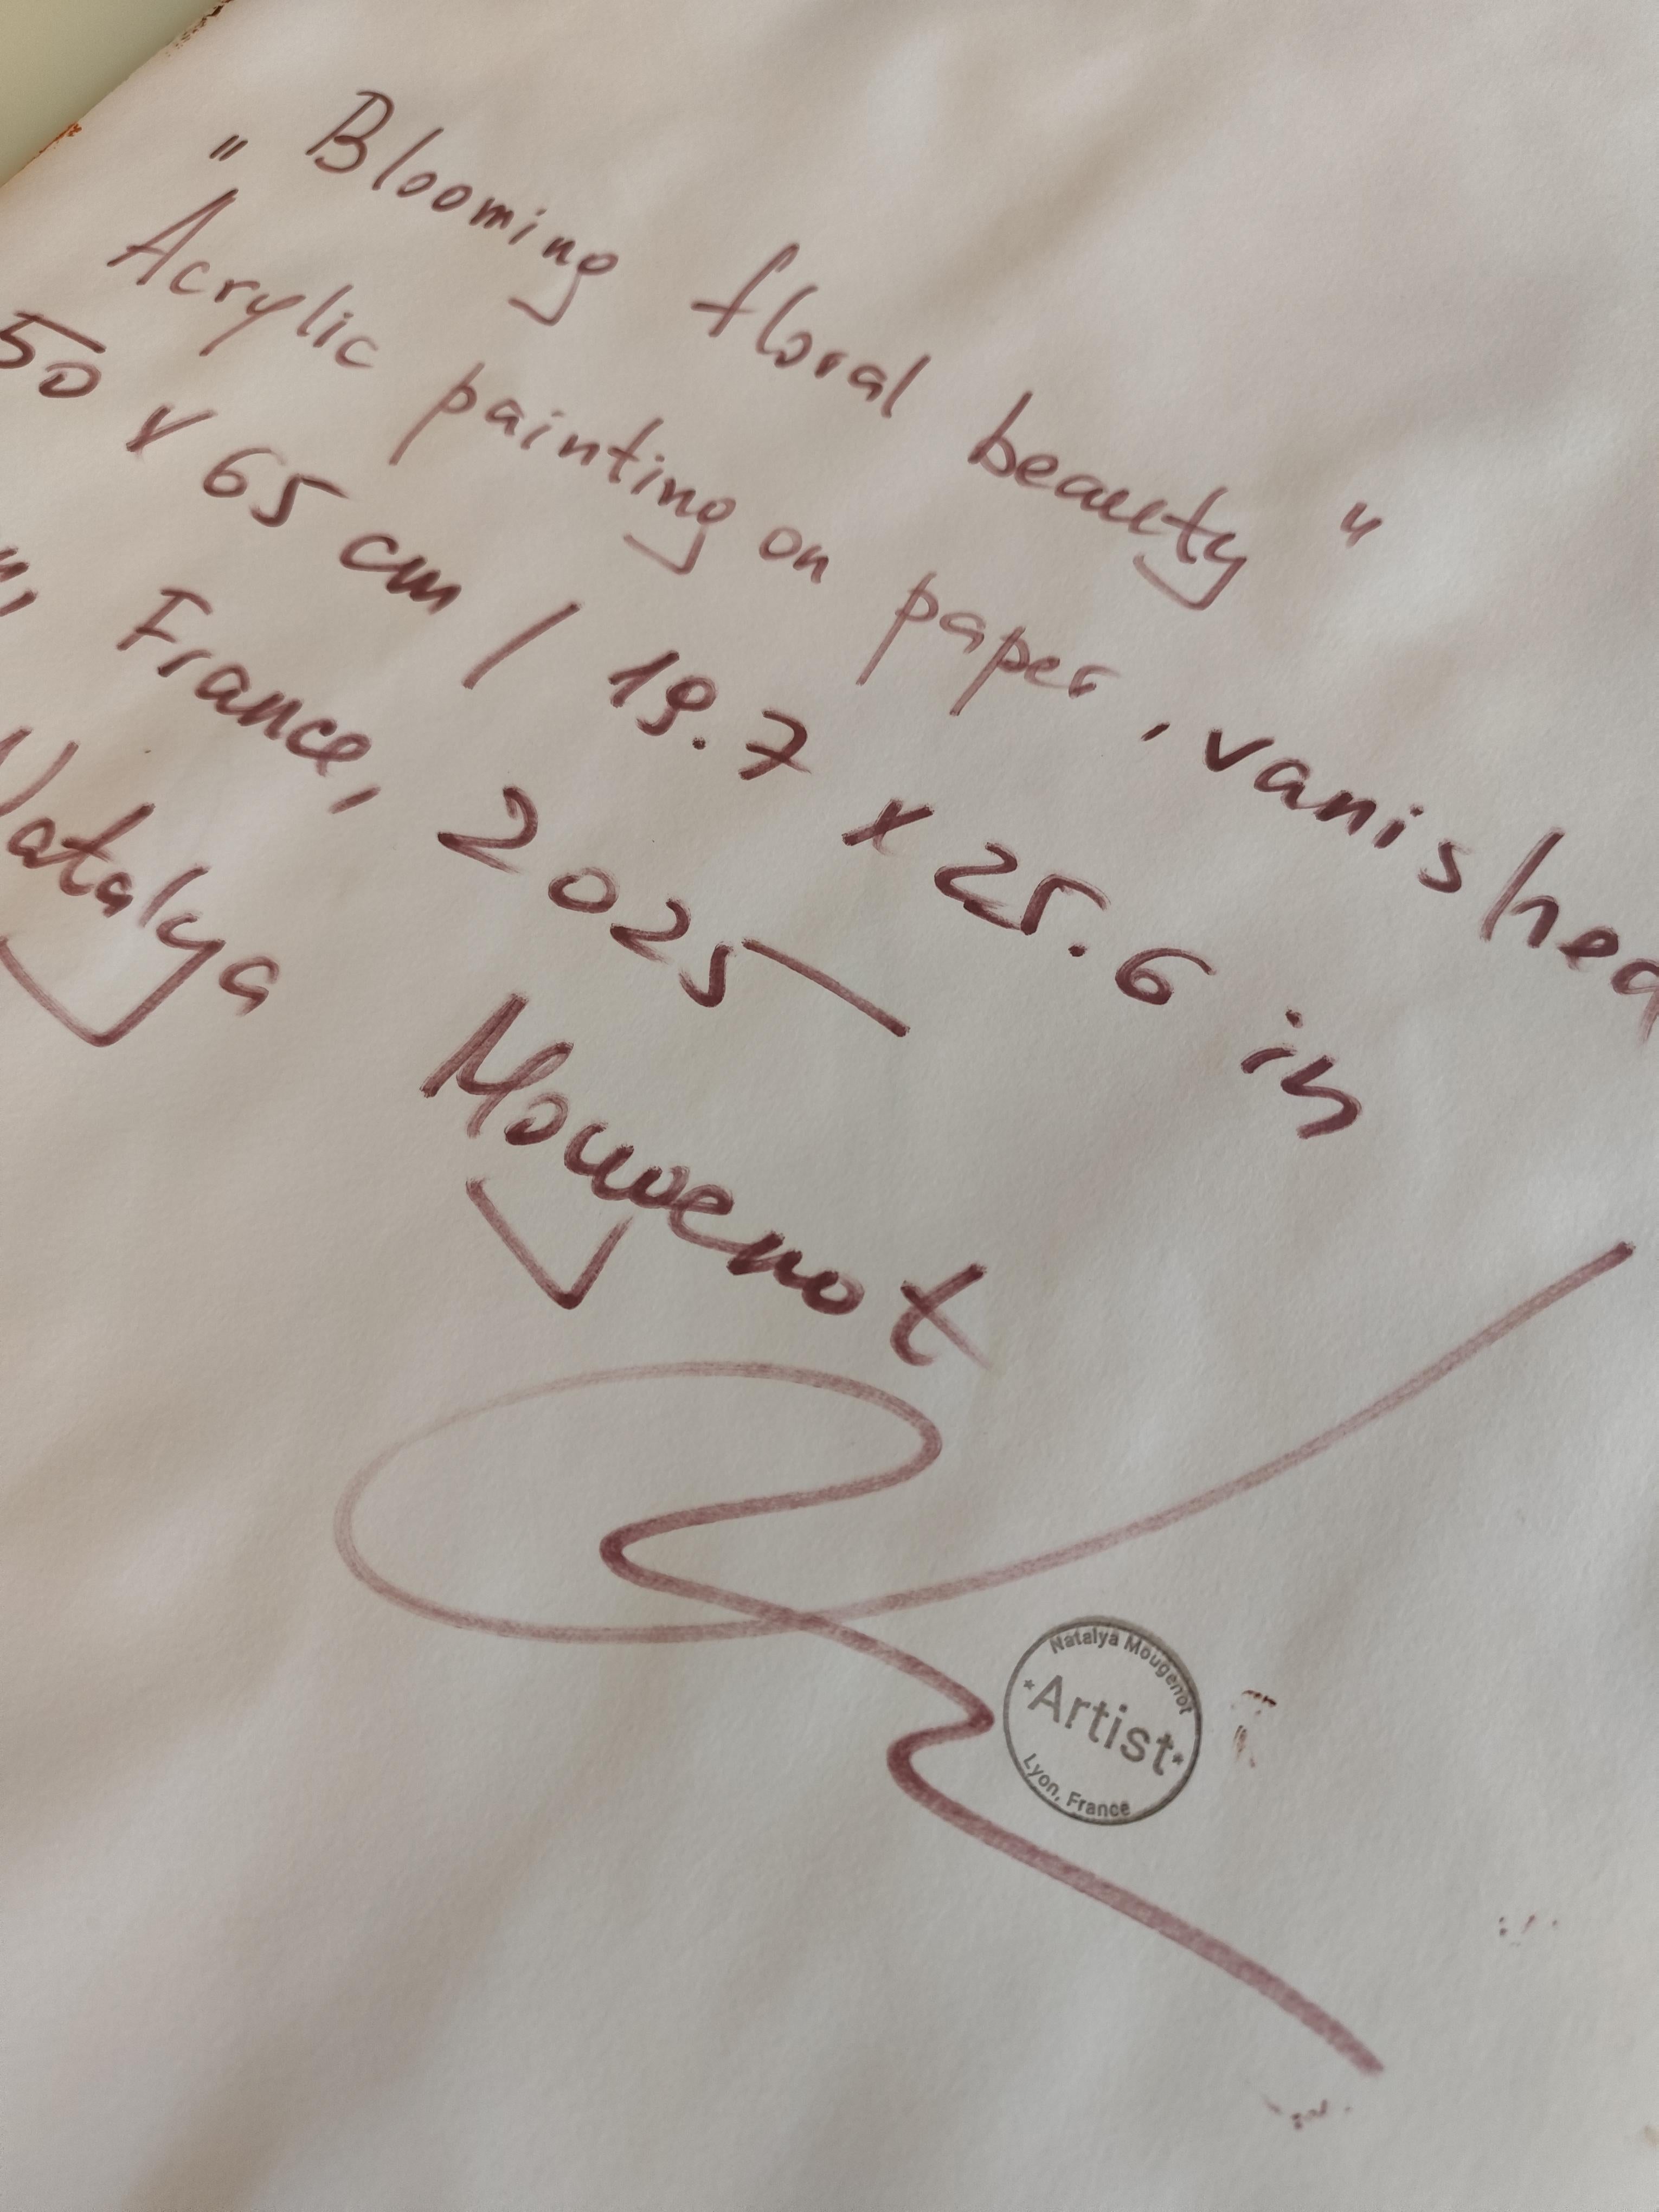 " Blooming floral beauty "
Acrylic painting on paper, vanished
50 x 65 cm / 19.7 x 25.6 in
n, France, 2025
Natalya Mougenot
Natalya Mougenot
*Artist*
Lyon, France